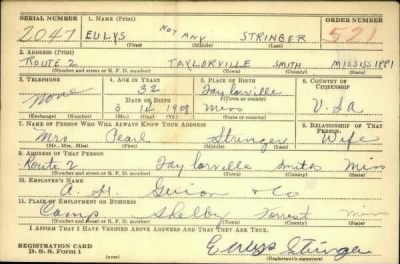 SERIAL NUMBER 1. Name (Print) ORDER NUMBER
2047 EULYS NOT ANY STRINGER 521
(First) (Middle) (Last)
2. Address (Print)
ROUTE 2 TAYLORVILLE SMITH MISSISSIPPI
(Number and street or R. F. D. number) (Town) (County) (State)
3. Telephone 4. Age in Years 5. Place of Birth 6. Country of Citizenship
None 32 Taylorville U.S.A
Date of Birth (Town or county)
3 14 1908 Miss
(Exchange) (Number) (Mo.) (Day) (Yr.) (State or country)
7. Name of Person Who Will Always Know Your Address 8. Relationship of That Person
Mrs. Pearl Stringer Wife
(Mr., Mrs., Miss) (First) (Middle) (Last)
9. Address of That Person
Route 2 Taylorville Smith Miss
(Number and street or R. F. D. number) (Town) (County) (State)
10. Employer's Name
A. H. Guion & Co
11. Place of Employment or Business
Camp Shelby Forrest Miss
(Number and street or R. F. D. number) (Town) (County) (State)
I Affirm That I Have Verified Above Answers and That They Are True.
REGISTRATION CARD Eulys Stringer
D. S. S. Form 1 (Registrant's signature)